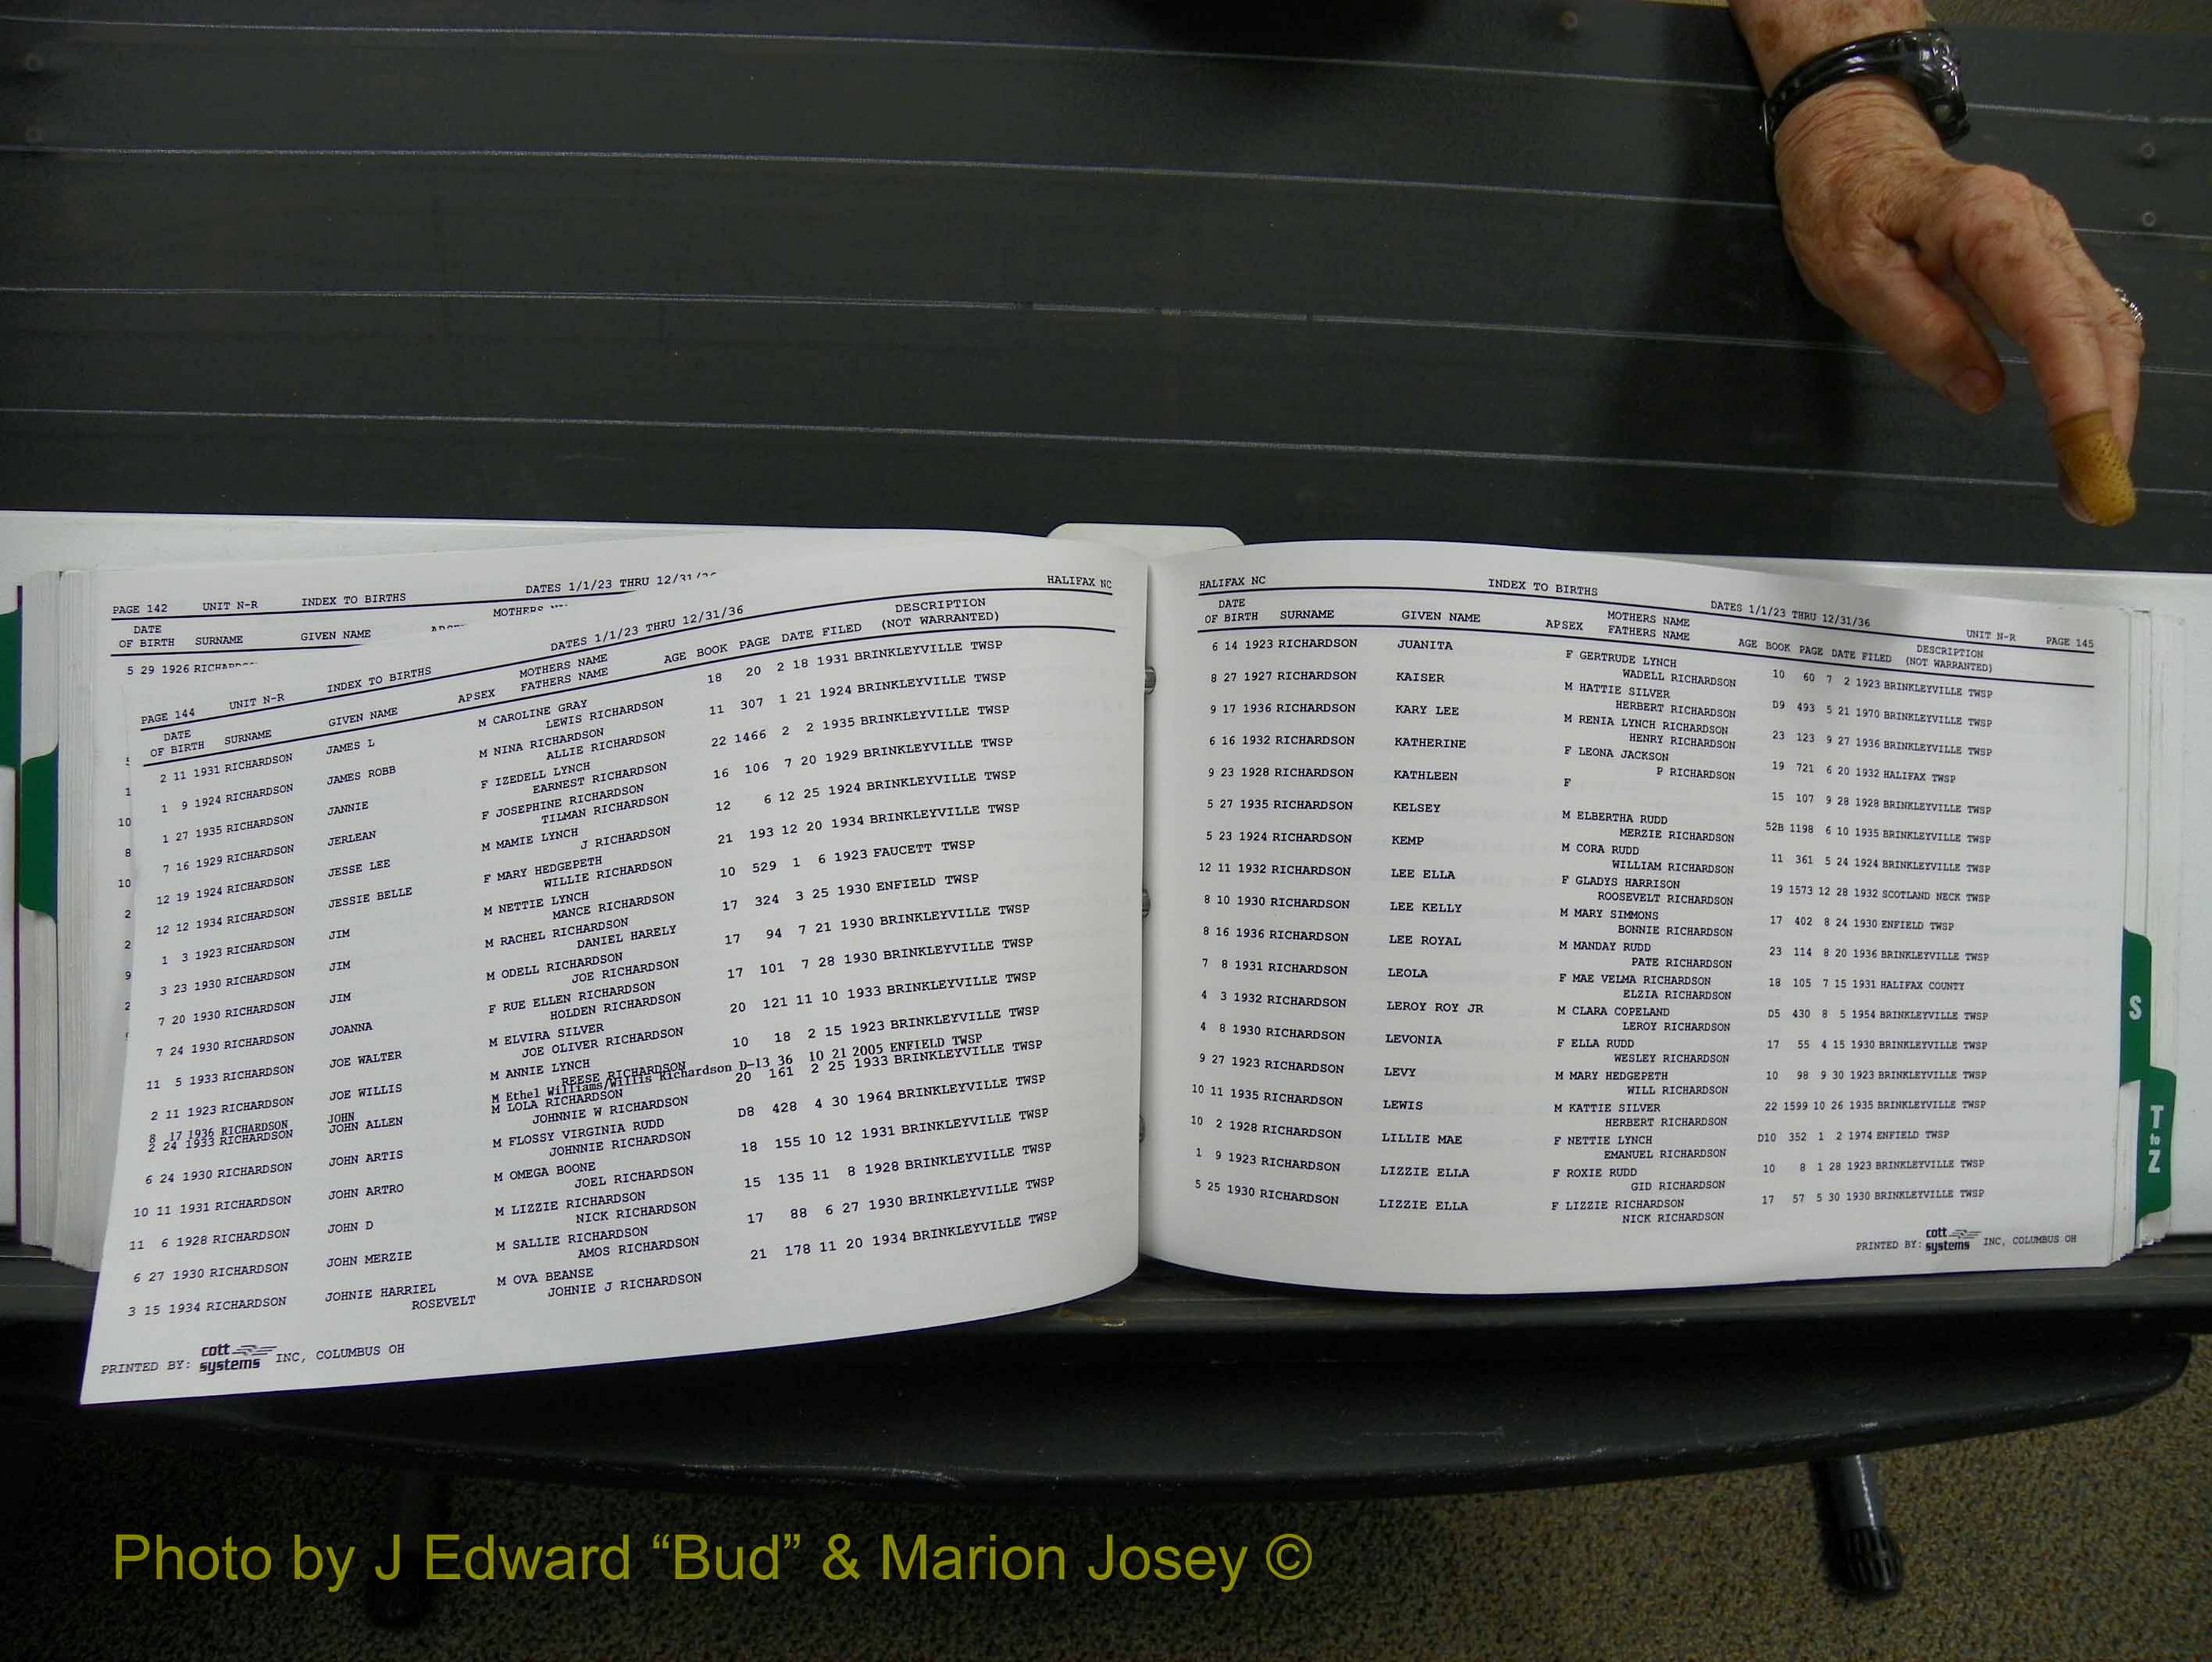 PAGE 142 UNIT N-R INDEX TO BIRTHS DATES 1/1/23 THRU
DATE
OF BIRTH SURNAME GIVEN NAME
5 29 1926
PAGE 144 UNIT N-R INDEX TO BIRTHS DATES 1/1/23 THRU 12/31/36 HALIFAX NC
DATE MOTHERS NAME DESCRIPTION
OF BIRTH SURNAME GIVEN NAME APSEX FATHERS NAME AGE BOOK PAGE DATE FILED (NOT WARRANTED)
2 11 1931 RICHARDSON JAMES L M CAROLINE GRAY 18 20 2 18 1931 BRINKLEYVILLE TWSP
LEWIS RICHARDSON
1 9 1924 RICHARDSON JAMES ROBB M NINA RICHARDSON 11 307 1 21 1924 BRINKLEYVILLE TWSP
ALLIE RICHARDSON
1 27 1935 RICHARDSON JANNIE F IZEDELL LYNCH 22 1466 2 2 1935 BRINKLEYVILLE TWSP
EARNEST RICHARDSON
7 16 1929 RICHARDSON JERLEAN F JOSEPHINE RICHARDSON 16 106 7 20 1929 BRINKLEYVILLE TWSP
TILMAN RICHARDSON
12 19 1924 RICHARDSON JESSE LEE M MAMIE LYNCH 12 6 12 25 1924 BRINKLEYVILLE TWSP
J RICHARDSON
12 12 1934 RICHARDSON JESSIE BELLE F MARY HEDGEPETH 21 193 12 20 1934 BRINKLEYVILLE TWSP
WILLIE RICHARDSON
1 3 1923 RICHARDSON JIM M NETTIE LYNCH 10 529 1 6 1923 FAUCETT TWSP
MANCE RICHARDSON
3 23 1930 RICHARDSON JIM M RACHEL RICHARDSON 17 324 3 25 1930 ENFIELD TWSP
DANIEL HARELY
7 20 1930 RICHARDSON JIM M ODELL RICHARDSON 17 94 7 21 1930 BRINKLEYVILLE TWSP
JOE RICHARDSON
7 24 1930 RICHARDSON JOANNA F RUE ELLEN RICHARDSON 17 101 7 28 1930 BRINKLEYVILLE TWSP
HOLDEN RICHARDSON
11 5 1933 RICHARDSON JOE WALTER M ELVIRA SILVER 20 121 11 10 1933 BRINKLEYVILLE TWSP
JOE OLIVER RICHARDSON
2 11 1923 RICHARDSON JOE WILLIS M ANNIE LYNCH 10 18 2 15 1923 BRINKLEYVILLE TWSP
REESE RICHARDSON
8 17 1936 RICHARDSON JOHN M Ethel Williams/Willis Richardson D-13 36 10 21 2005 ENFIELD TWSP
2 24 1933 RICHARDSON JOHN ALLEN M LOLA RICHARDSON 20 161 2 25 1933 BRINKLEYVILLE TWSP
JOHNNIE W RICHARDSON
6 24 1930 RICHARDSON JOHN ARTIS M FLOSSY VIRGINIA RUDD D8 428 4 30 1964 BRINKLEYVILLE TWSP
JOHNNIE RICHARDSON
10 11 1931 RICHARDSON JOHN ARTRO M OMEGA BOONE 18 155 10 12 1931 BRINKLEYVILLE TWSP
JOEL RICHARDSON
11 6 1928 RICHARDSON JOHN D M LIZZIE RICHARDSON 15 135 11 8 1928 BRINKLEYVILLE TWSP
NICK RICHARDSON
6 27 1930 RICHARDSON JOHN MERZIE M SALLIE RICHARDSON 17 88 6 27 1930 BRINKLEYVILLE TWSP
AMOS RICHARDSON
3 15 1934 RICHARDSON JOHNIE HARRIEL M OVA BEANSE 21 178 11 20 1934 BRINKLEYVILLE TWSP
ROSEVELT JOHNIE J RICHARDSON
PRINTED BY: cott systems INC, COLUMBUS OH
HALIFAX NC INDEX TO BIRTHS DATES 1/1/23 THRU 12/31/36 UNIT N-R PAGE 145
DATE MOTHERS NAME DESCRIPTION
OF BIRTH SURNAME GIVEN NAME APSEX FATHERS NAME AGE BOOK PAGE DATE FILED (NOT WARRANTED)
6 14 1923 RICHARDSON JUANITA F GERTRUDE LYNCH 10 60 7 2 1923 BRINKLEYVILLE TWSP
WADELL RICHARDSON
8 27 1927 RICHARDSON KAISER M HATTIE SILVER D9 493 5 21 1970 BRINKLEYVILLE TWSP
HERBERT RICHARDSON
9 17 1936 RICHARDSON KARY LEE M RENIA LYNCH RICHARDSON 23 123 9 27 1936 BRINKLEYVILLE TWSP
HENRY RICHARDSON
6 16 1932 RICHARDSON KATHERINE F LEONA JACKSON 19 721 6 20 1932 HALIFAX TWSP
P RICHARDSON
9 23 1928 RICHARDSON KATHLEEN F 15 107 9 28 1928 BRINKLEYVILLE TWSP
5 27 1935 RICHARDSON KELSEY M ELBERTHA RUDD 52B 1198 6 10 1935 BRINKLEYVILLE TWSP
MERZIE RICHARDSON
5 23 1924 RICHARDSON KEMP M CORA RUDD 11 361 5 24 1924 BRINKLEYVILLE TWSP
WILLIAM RICHARDSON
12 11 1932 RICHARDSON LEE ELLA F GLADYS HARRISON 19 1573 12 28 1932 SCOTLAND NECK TWSP
ROOSEVELT RICHARDSON
8 10 1930 RICHARDSON LEE KELLY M MARY SIMMONS 17 402 8 24 1930 ENFIELD TWSP
BONNIE RICHARDSON
8 16 1936 RICHARDSON LEE ROYAL M MANDAY RUDD 23 114 8 20 1936 BRINKLEYVILLE TWSP
PATE RICHARDSON
7 8 1931 RICHARDSON LEOLA F MAE VELMA RICHARDSON 18 105 7 15 1931 HALIFAX COUNTY
ELZIA RICHARDSON
4 3 1932 RICHARDSON LEROY ROY JR M CLARA COPELAND D5 430 8 5 1954 BRINKLEYVILLE TWSP
LEROY RICHARDSON
4 8 1930 RICHARDSON LEVONIA F ELLA RUDD 17 55 4 15 1930 BRINKLEYVILLE TWSP
WESLEY RICHARDSON
9 27 1923 RICHARDSON LEVY M MARY HEDGEPETH 10 98 9 30 1923 BRINKLEYVILLE TWSP
WILL RICHARDSON
10 11 1935 RICHARDSON LEWIS M KATTIE SILVER 22 1599 10 26 1935 BRINKLEYVILLE TWSP
HERBERT RICHARDSON
10 2 1928 RICHARDSON LILLIE MAE F NETTIE LYNCH D10 352 1 2 1974 ENFIELD TWSP
EMANUEL RICHARDSON
1 9 1923 RICHARDSON LIZZIE ELLA F ROXIE RUDD 10 8 1 28 1923 BRINKLEYVILLE TWSP
GID RICHARDSON
5 25 1930 RICHARDSON LIZZIE ELLA F LIZZIE RICHARDSON 17 57 5 30 1930 BRINKLEYVILLE TWSP
NICK RICHARDSON
PRINTED BY: cott systems INC, COLUMBUS OH
S
T to Z
Photo by J Edward “Bud” & Marion Josey ©